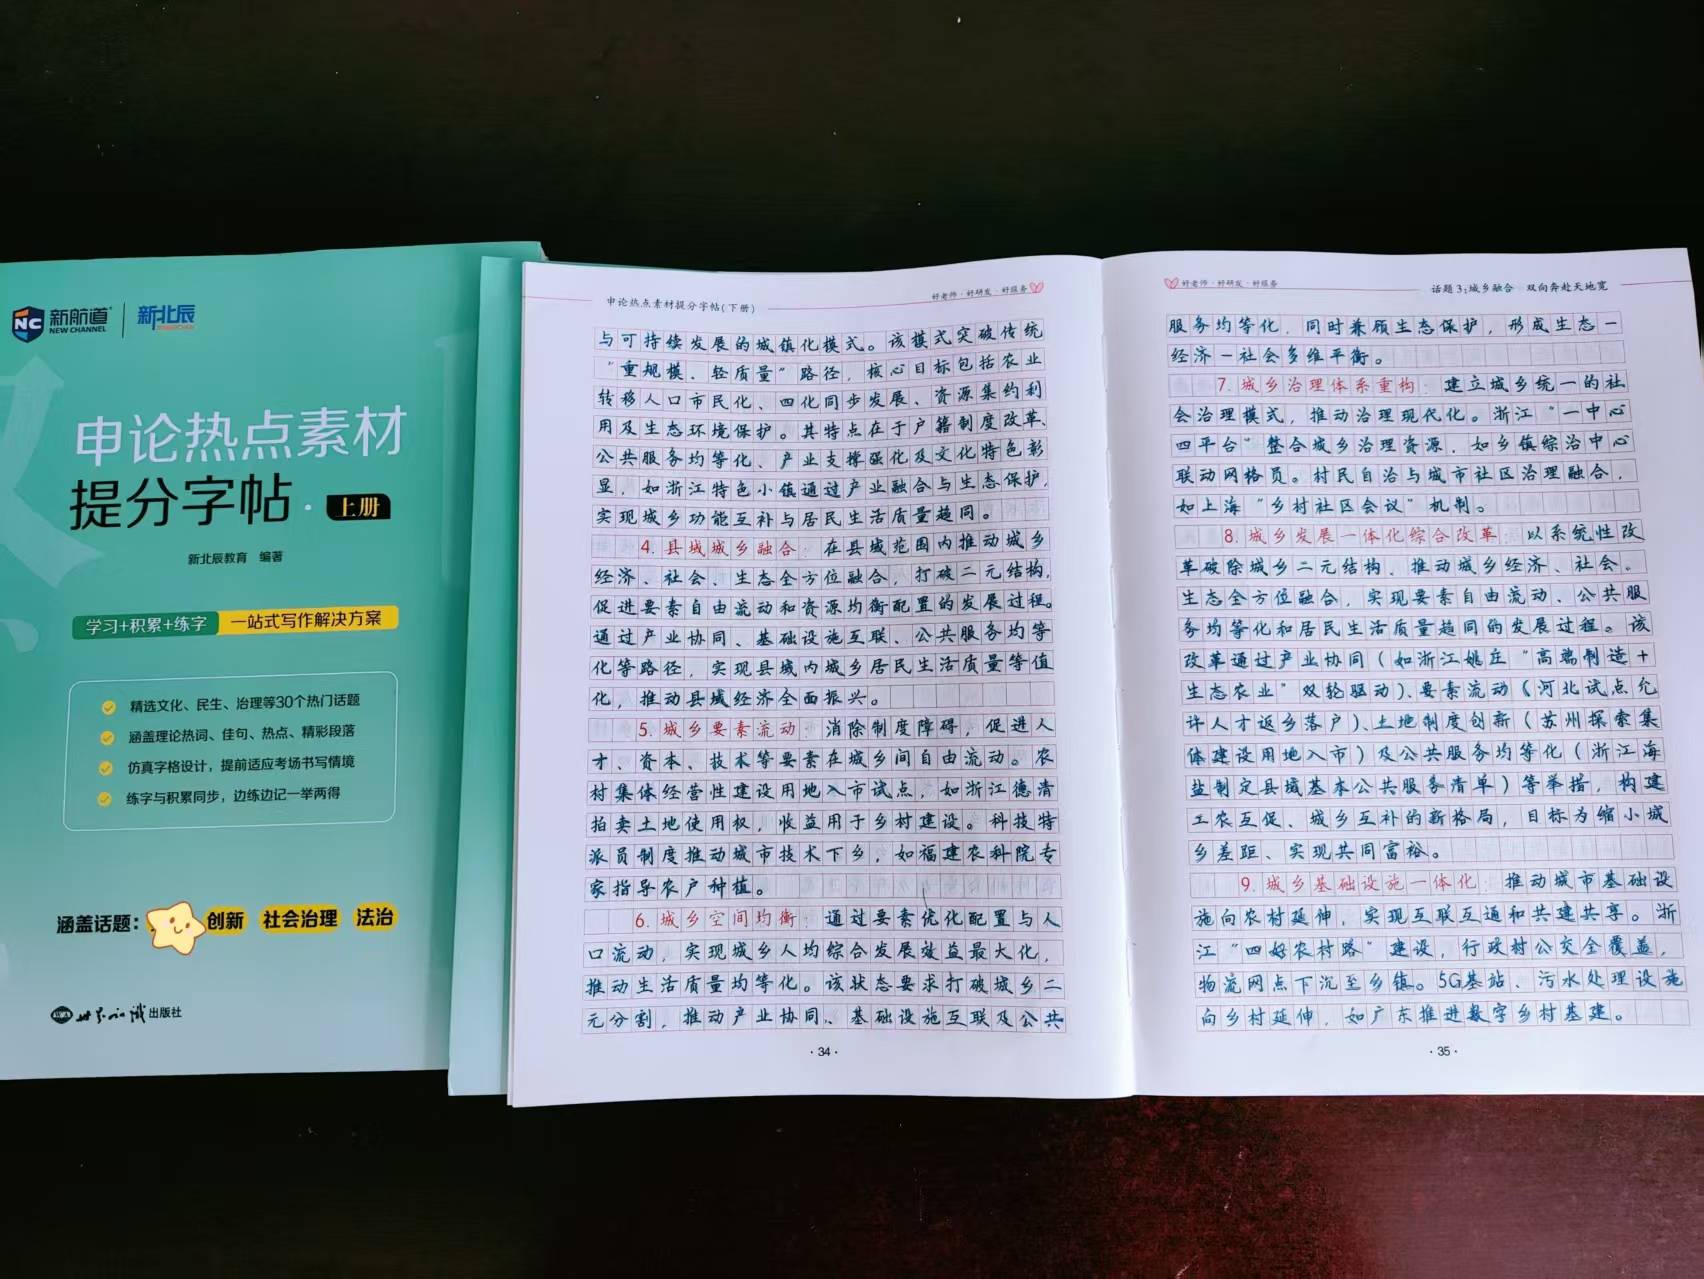 新航道
NEW CHANNEL
新北辰
申论热点素材
提分字帖·上册
新北辰教育 编著
学习+积累+练字 一站式写作解决方案
精选文化、民生、治理等30个热门话题
涵盖理论热词、佳句、热点、精彩段落
仿真字格设计，提前适应考场书写情境
练字与积累同步，边练边记一举两得
涵盖话题： 创新 社会治理 法治
世界知识出版社
申论热点素材提分字帖(下册)
好老师·好研发·好服务
与可持续发展的城镇化模式。该模式突破传统
“重规模、轻质量”路径，核心目标包括农业
转移人口市民化、四化同步发展、资源集约利
用及生态环境保护。其特点在于户籍制度改革、
公共服务均等化、产业支撑强化及文化特色彰
显，如浙江特色小镇通过产业融合与生态保护，
实现城乡功能互补与居民生活质量趋同。
4.县域城乡融合：在县域范围内推动城乡
经济、社会、生态全方位融合，打破二元结构，
促进要素自由流动和资源均衡配置的发展过程。
通过产业协同、基础设施互联、公共服务均等
化等路径，实现县域内城乡居民生活质量等值
化，推动县域经济全面振兴。
5.城乡要素流动：消除制度障碍，促进人
才、资本、技术等要素在城乡间自由流动。农
村集体经营性建设用地入市试点，如浙江德清
拍卖土地使用权，收益用于乡村建设。科技特
派员制度推动城市技术下乡，如福建农科院专
家指导农户种植。
6.城乡空间均衡：通过要素优化配置与人
口流动，实现城乡人均综合发展效益最大化，
推动生活质量均等化。该状态要求打破城乡二
元分割，推动产业协同、基础设施互联及公共
·34·
好老师·好研发·好服务
话题3:城乡融合 双向奔赴天地宽
服务均等化，同时兼顾生态保护，形成生态－
经济－社会多维平衡。
7.城乡治理体系重构：建立城乡统一的社
会治理模式，推动治理现代化。浙江“一中心
四平台”整合城乡治理资源，如乡镇综治中心
联动网格员。村民自治与城市社区治理融合，
如上海“乡村社区会议”机制。
8.城乡发展一体化综合改革：以系统性改
革破除城乡二元结构，推动城乡经济、社会、
生态全方位融合，实现要素自由流动、公共服
务均等化和居民生活质量趋同的发展过程。该
改革通过产业协同（如浙江姚庄“高端制造＋
生态农业”双轮驱动）、要素流动（河北试点允
许人才返乡落户）、土地制度创新（苏州探索集
体建设用地入市）及公共服务均等化（浙江海
盐制定县域基本公共服务清单）等举措，构建
工农互促、城乡互补的新格局，目标为缩小城
乡差距、实现共同富裕。
9.城乡基础设施一体化：推动城市基础设
施向农村延伸，实现互联互通和共建共享。浙
江“四好农村路”建设，行政村公交全覆盖，
物流网点下沉至乡镇。5G基站、污水处理设施
向乡村延伸，如广东推进数字乡村基建。
·35·